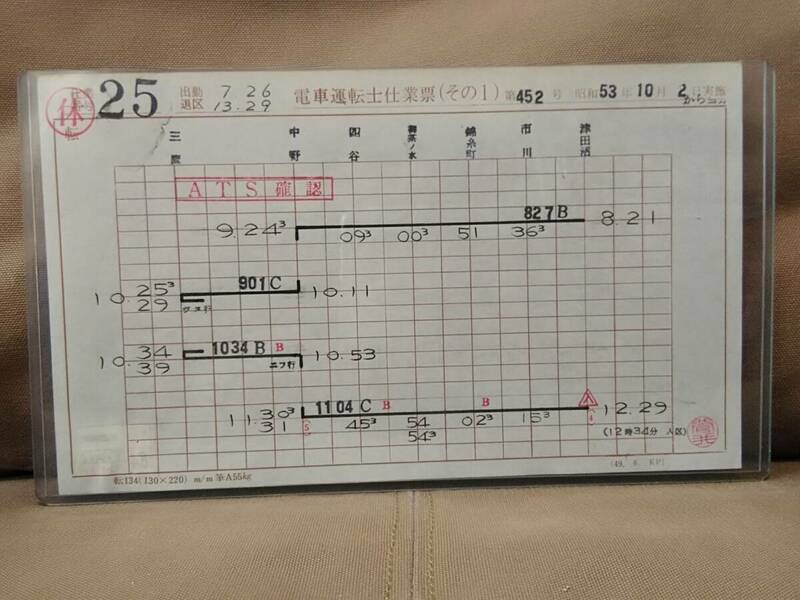 休 25 出勤 7 26 電車運転士仕業票(その1) 第452号 昭和53年10月2日実施
転 退区 13.29 から
三鷹 中野 四谷 御茶ノ水 錦糸町 市川 津田沼
ATS確認
827B
9.24³ 09³ 00³ 51 36³ 8.21
901C
10.25³ 10.11
29
1034B B
10.34 10.53
39
1104C B B
11.30³ 45³ 54 02³ 15³ 12.29
31 54³ (12時34分 入区)
転134(130×220) m/m 筆A55kg